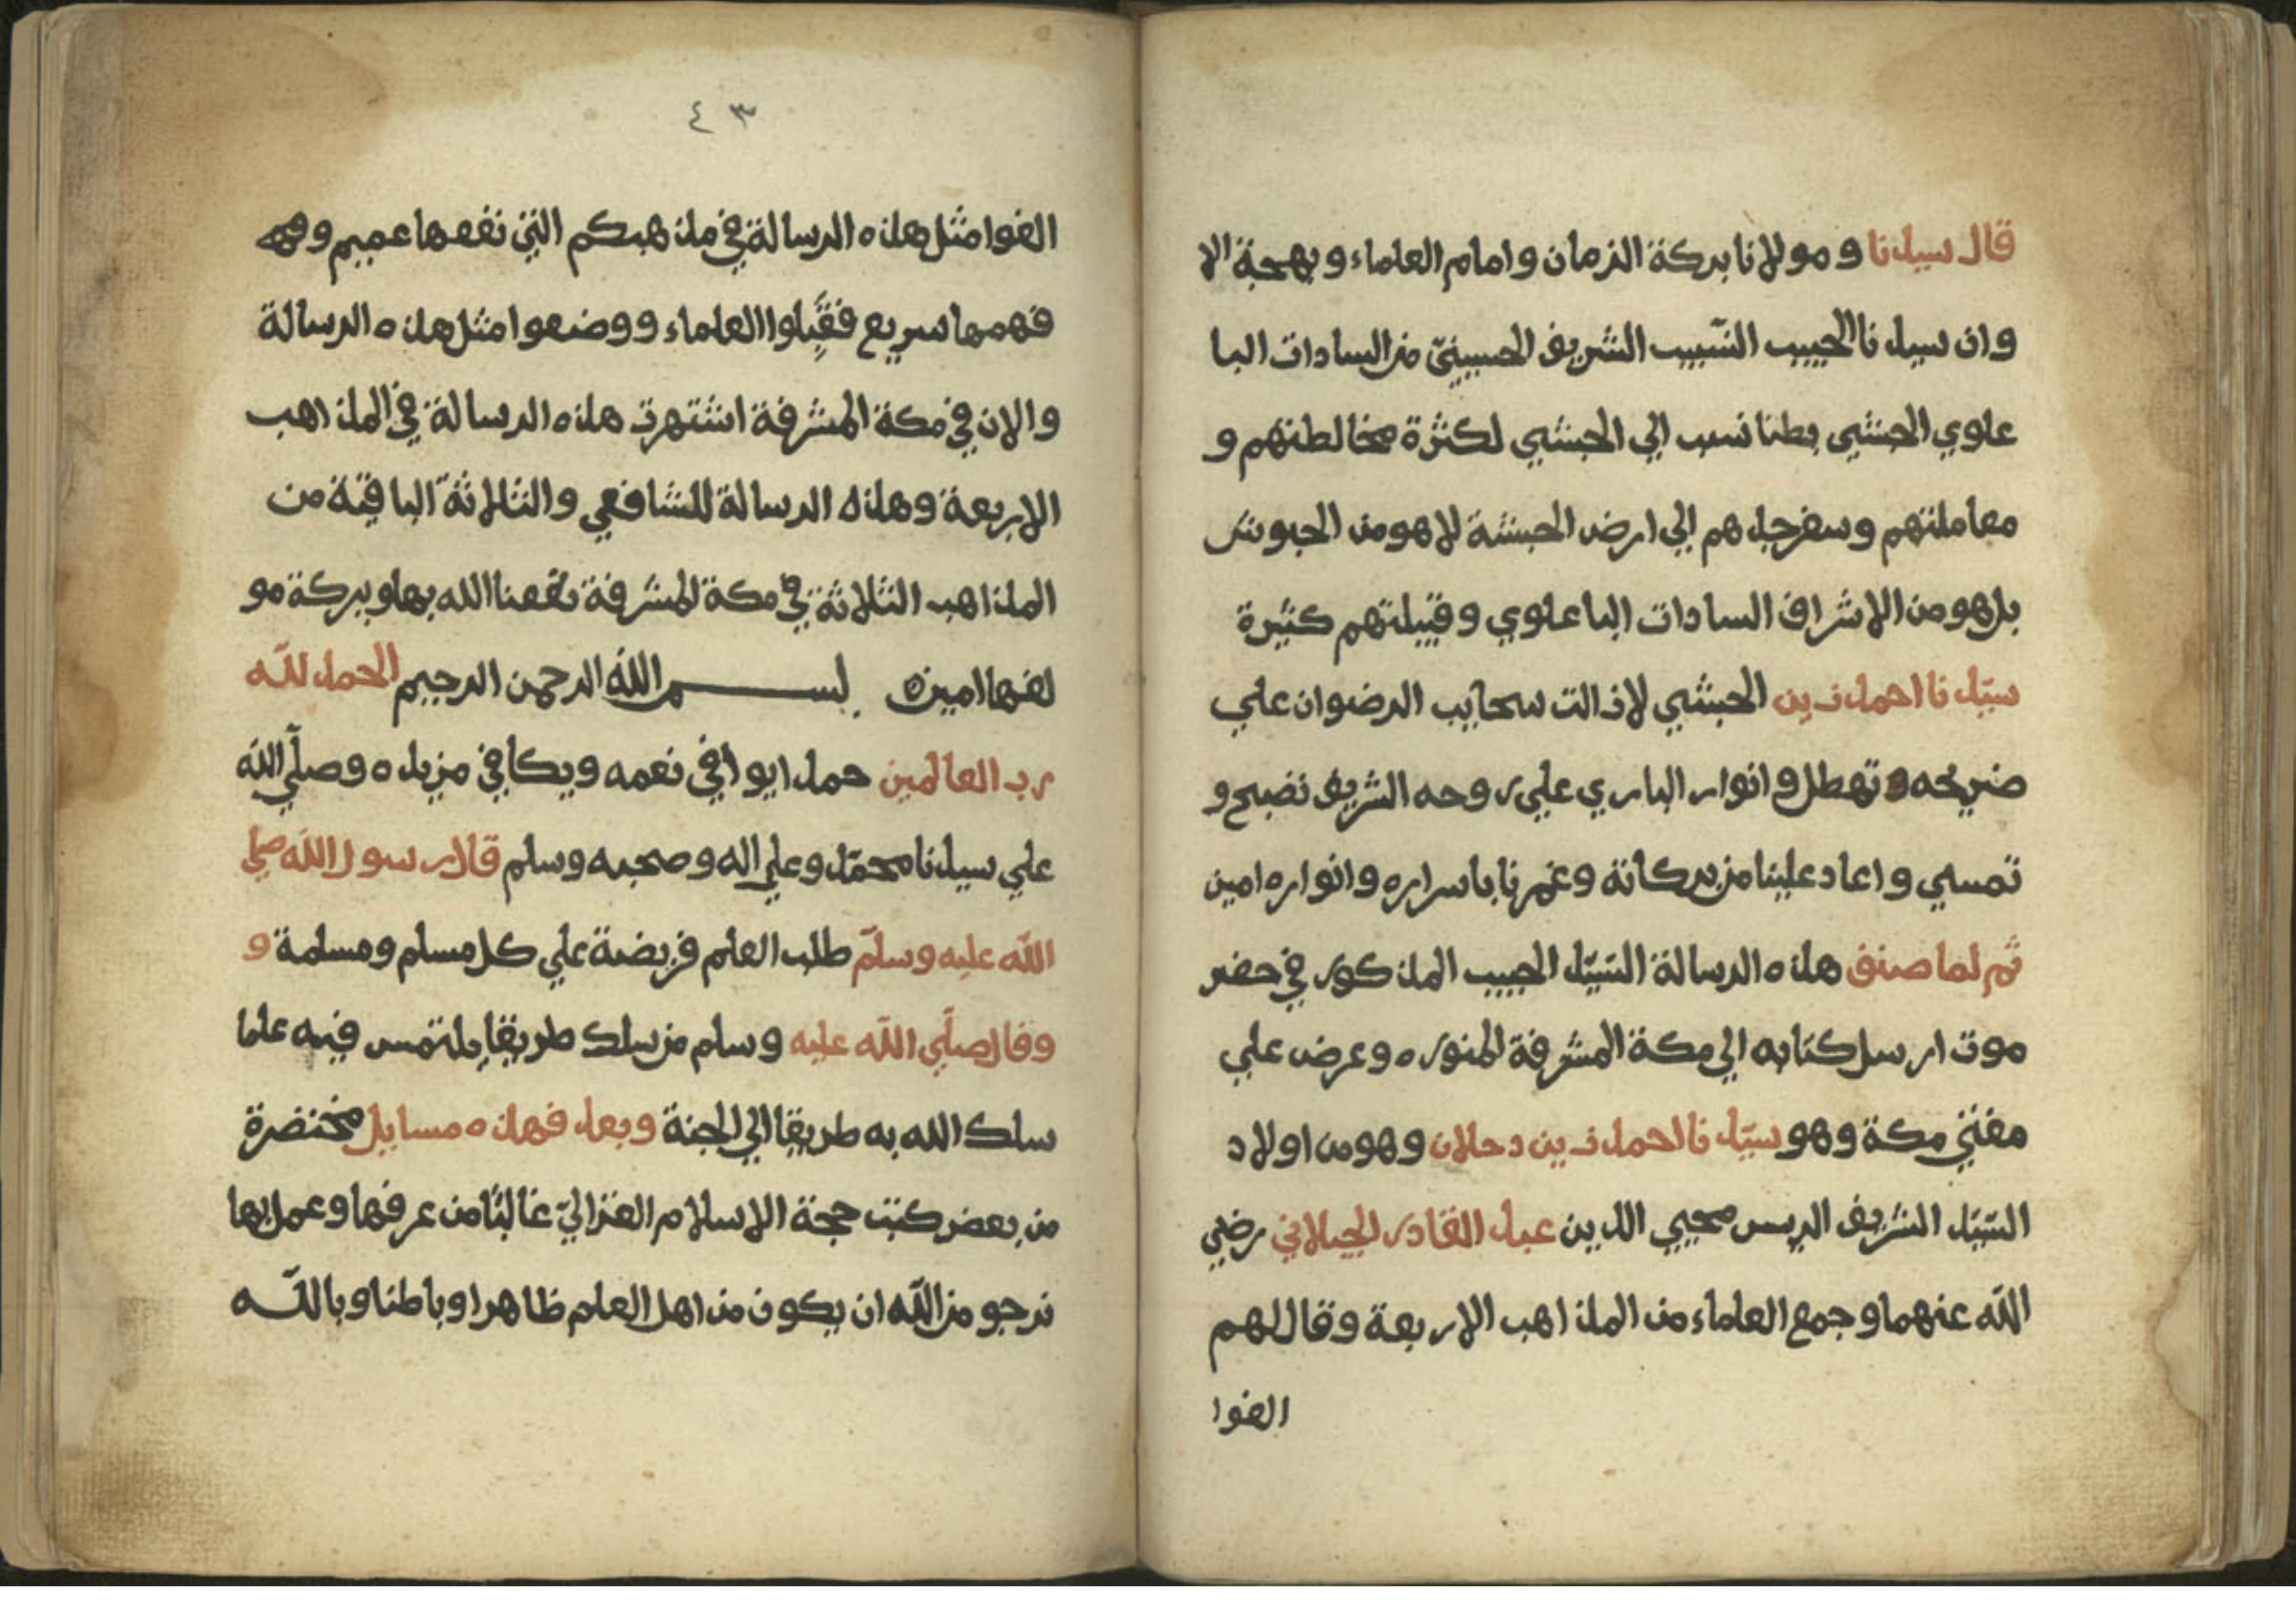 قال سيدنا و مولانا بركة الزمان و امام العلماء و بهجة الا
وان سيدنا الحبيب النسيب الشريف الحسيني من السادات البا
علوي الحبشي بطنا نسب الي الحبشي لكثرة مخالطتهم و
معاملتهم و سفر جدهم الي ارض الحبشة لا هو من الحبوش
بل هو من الاشراف السادات البا علوي و قبيلتهم كثيرة
سيّدنا احمد زين الحبشي لازالت سحايب الرضوان علي
ضريحه تهطل و انوار الباري علي روحه الشريف تضبح و
تمسي و اعاد علينا من بركاتة و غمرنا باسراره و انواره امين
ثم لما صنف هذه الرسالة السّيّد الحبيب المذكور في حضر
موت ارسل كتابه الي مكة المشرفة المنوره و عرض علي
مفتي مكة وهو سيّدنا احمد زين دحلان وهو من اولاد
السّيّد الشريف الريس محيي الدين عبد القادر الجيلاني رضي
الله عنهما و جمع العلماء من المذاهب الاربعة وقال لهم
الفوا
٤٣
الفوا مثل هذه الرسالة في مذهبكم التي نفعها عميم و
فهمها سريع فقَبِلوا العلماء ووضعوا مثل هذه الرسالة
والان في مكة المشرفة اشتهرت هذه الرسالة في المذاهب
الاربعة وهذه الرسالة للشافعي والثلاثة الباقية من
المذاهب الثلاثة في مكة المشرفة نفعنا الله بها وبركة مو
لفها امين بسم الله الرحمن الرحيم الحمد للّه
رب العالمين حمدا يوافي نعمه ويكافي مزيده وصلّي اللّه
علي سيدنا محمّد وعلي اله وصحبه وسلم قال رسول اللّه صلي
اللّه عليه وسلّم طلب العلم فريضة علي كل مسلم ومسلمة و
وقال صلّي اللّه عليه وسلم من سلك طريقا يلتمس فيه علما
سلك الله به طريقا الي الجنة وبعد فهذه مسايل مختضرة
من بعض كتب حجة الاسلام الغزاليّ غالبًا من عرفها وعمل بها
نرجو من اللّه ان يكون من اهل العلم ظاهرا وباطنا وباللّه